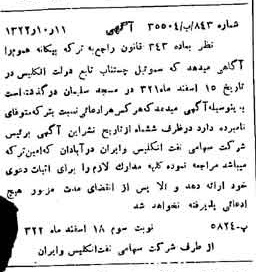 شماره ۸۴۳/ب/۳۵۵۰۴ آگهی ۱۱ر۱۰ر۱۳۲۲
نظر بماده ۳۴۳ قانون راجع به ترکه بیگانه عموم را
آگاهی میدهد که سموئیل چستناب تابع دولت انگلیس در
تاریخ ۱۵ اسفند ماه ۳۲۱ در مسجد سلیمان درگذشته است
بدینوسیله آگهی میدهد که هر کس هر ادعائی نسبت بترکه متوفای
نامبرده دارد در ظرف ششماه از تاریخ نشر این آگهی برئیس
شرکت سهامی نفت انگلیس و ایران در آبادان که امین ترکه
میباشد مراجعه نموده کلیه مدارک لازم را برای اثبات دعوی
خود ارائه دهد و الا پس از انقضای مدت مزبور هیچ
ادعائی پذیرفته نخواهد شد
پ-۵۸۲۴ نوبت سوم ۱۸ اسفند ماه ۳۲۲
از طرف شرکت سهامی نفت انگلیس و ایران